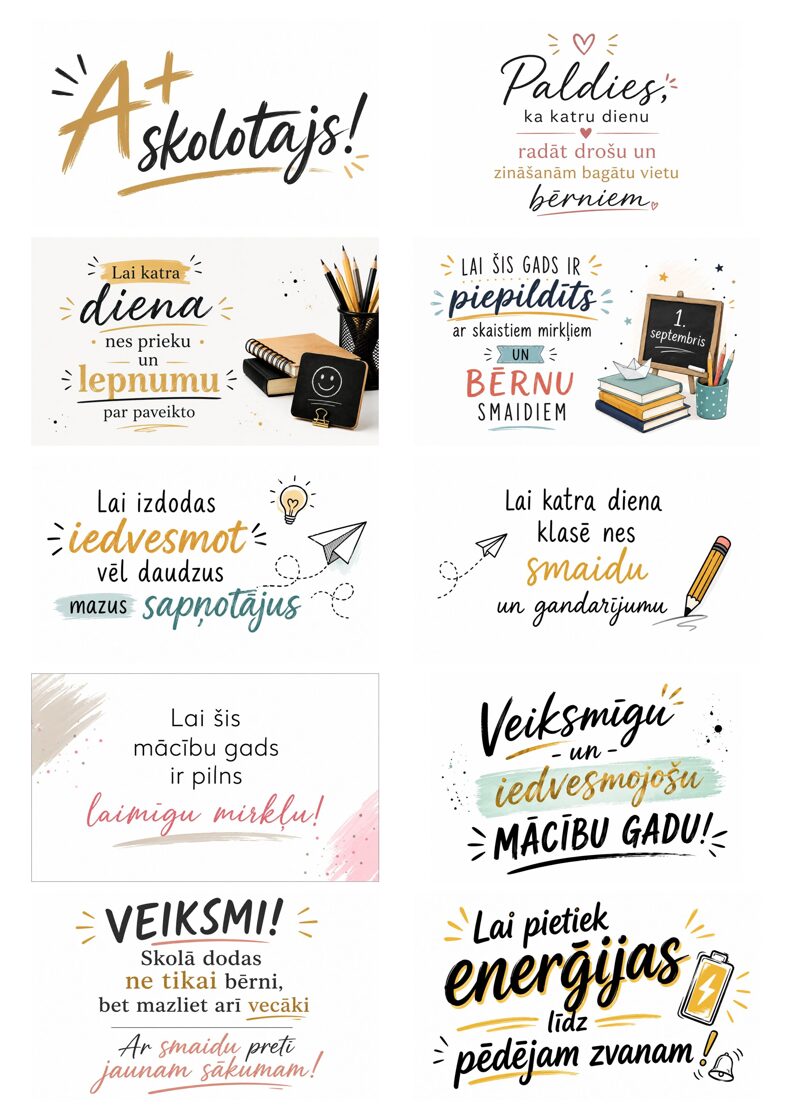 A+
skolotajs!
Paldies,
ka katru dienu
radāt drošu un
zināšanām bagātu vietu
bērniem
Lai katra
diena
nes prieku
un
lepnumu
par paveikto
LAI ŠIS GADS IR
piepildīts
ar skaistiem mirkļiem
UN
BĒRNU
SMAIDIEM
1.
septembris
Lai izdodas
iedvesmot
vēl daudzus
mazus sapņotājus
Lai katra diena
klasē nes
smaidu
un gandarījumu
Lai šis
mācību gads
ir pilns
laimīgu mirkļu!
Veiksmīgu
- un -
iedvesmojošu
MĀCĪBU GADU!
VEIKSMI!
Skolā dodas
ne tikai bērni,
bet mazliet arī vecāki
Ar smaidu pretī
jaunam sākumam!
Lai pietiek
enerģijas
līdz
pēdējam zvanam!